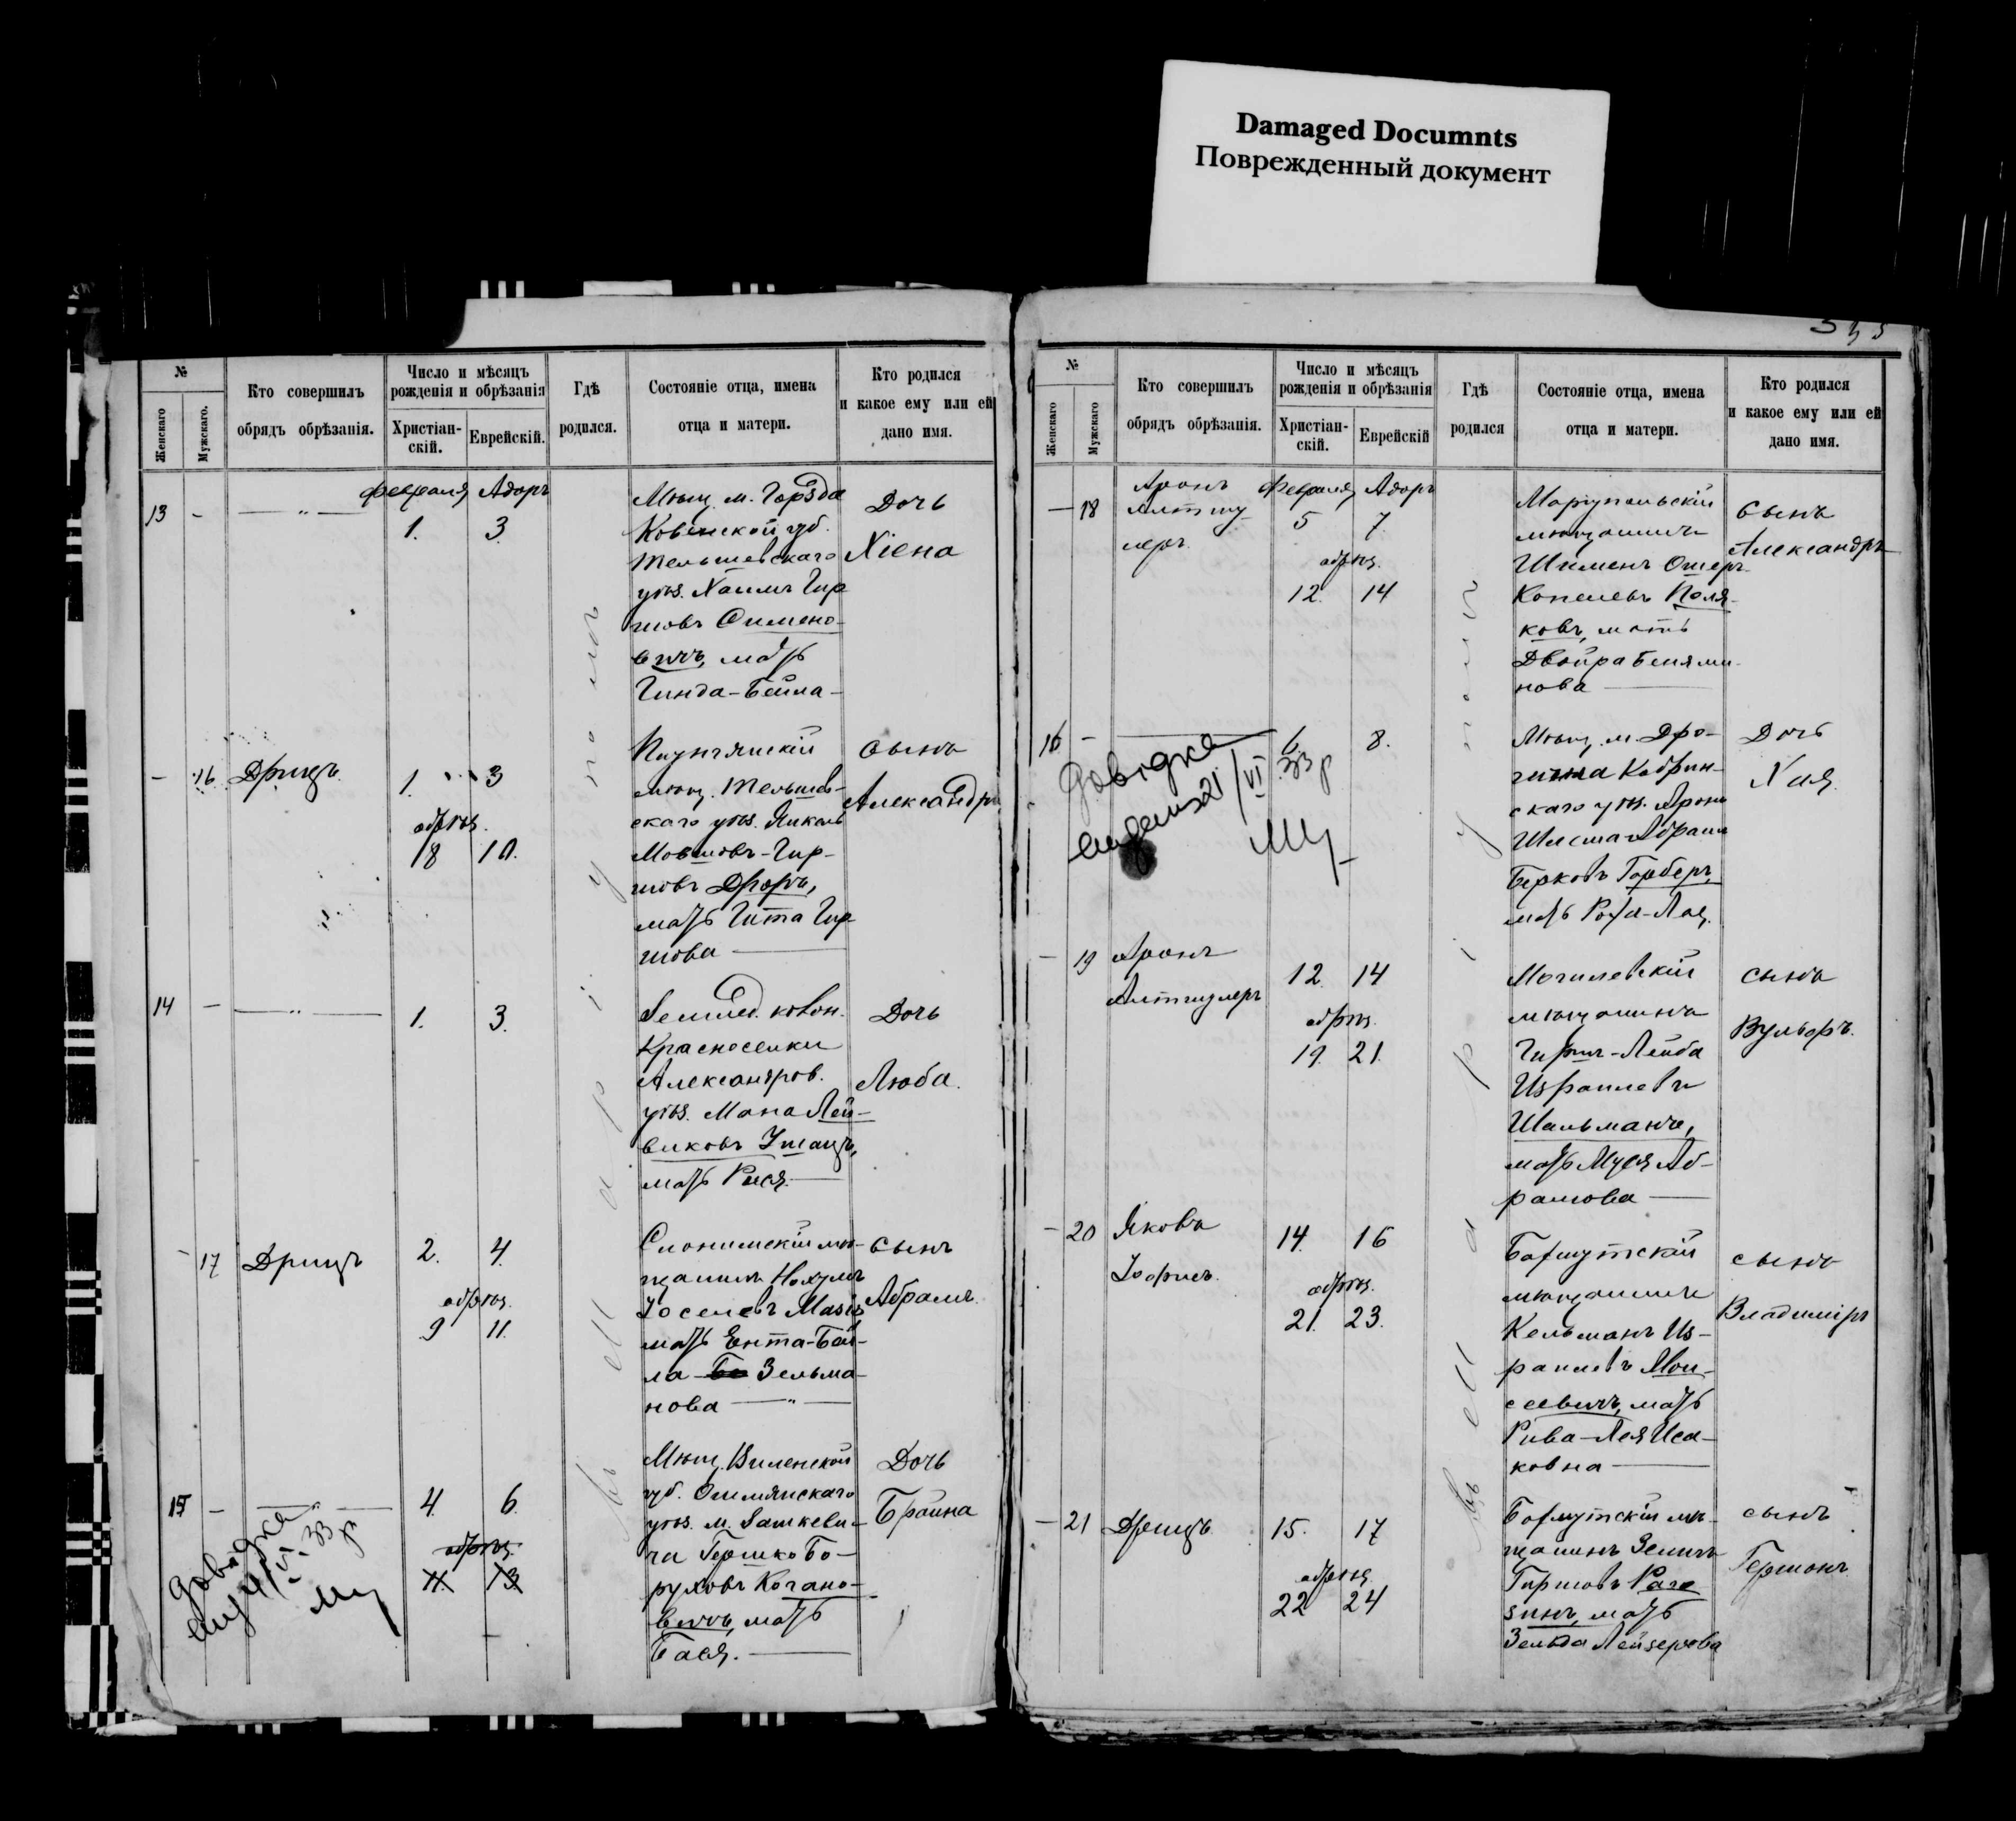 Damaged Documnts
Поврежденный документ
№
Женскаго
Мужскаго.
Кто совершилъ
обрядъ обрѣзанія.
Число и мѣсяцъ
рожденія и обрѣзанія
Христіан-
скій.
Еврейскій.
Гдѣ
родился.
Состояніе отца, имена
отца и матери.
Кто родился
и какое ему или ей
дано имя.
13 - — " —
Февраля Адоръ
1. 3.
Мѣщ. м. Горзда
Ковенской губ.
Тельшевскаго
уѣз. Хаимъ Гир
шовъ Симено-
вичъ, мать
Гинда-Бейла-
Дочь
Хіена
- 16 Дрицъ
1. 3
обрѣз.
8 10.
мѣщ. Тельшев-
скаго уѣз. Янкель
Мовшовъ-Гир-
шовъ
мать Гита Гир
шова —
Сынъ
Александръ
14 - — " —
1. 3.
Землед. колон.
Красноселки
Александров.
уѣз. Мана Лей-
виковъ
мать Рися.
Дочь
Люба.
- 17 Дрицъ
2. 4.
обрѣз.
9 11.
Слонимскій мѣ-
щанинъ Нохумъ
Іоселевъ
мать Ента-Бей-
ла - Зельма-
нова — " —
Сынъ
Абрамъ.
15 - — " —
4. 6.
обрѣз.
11. 13
Мѣщ. Виленской
губ. Ошмянскаго
уѣз. м. Сашкеви-
ча Гершко Бо-
руховъ Когано-
вичъ, мать
Бася. —
Дочь
Браина
въ Маріуполѣ
№
Женскаго
Мужскаго
Кто совершилъ
обрядъ обрѣзанія.
Число и мѣсяцъ
рожденія и обрѣзанія
Христіан-
скій.
Еврейскій
Гдѣ
родился
Состояніе отца, имена
отца и матери.
Кто родился
и какое ему или ей
дано имя.
- 18
Аронъ
Алтшу
леръ
Февраля Адоръ
5 7.
обрѣз.
12. 14
Маріупольскій
мѣщанинъ
Шименъ Ошеръ
Копелевъ Поля-
ковъ, мать
Двойра Беньями-
нова —
Сынъ
Александръ
16 - —
6. 8.
Довідка
видана 21/VI 33 р
Мѣщ. м. Дро-
гичина Кобрин-
скаго уѣз. Аронъ
Шлема-Абрамъ
Берковъ Горберъ,
мать Роза-Лая.
Дочь
Хая.
- 19 Аронъ
Алтшулеръ
12. 14
обрѣз.
19. 21.
Могилевскій
мѣщанинъ
Гиршъ-Лейба
Израилевъ
Шальманъ,
мать Муся Аб-
рамова —
сынъ
Вульфъ.
- 20 Яковъ
Іофисъ.
14. 16
обрѣз.
21. 23.
Бахмутскій
мѣщанинъ
Кельманъ Из-
раилевъ Мои-
сеевичъ, мать
Рива-Лея Иса-
ковна —
сынъ
Владиміръ
- 21 Дрицъ
15. 17
обрѣз.
22 24
Бахмутскій мѣ-
щанинъ Зелигъ
Гиршовъ Раго
зинъ, мать
Зельда Лейзерова
сынъ
Германъ
въ Маріуполѣ